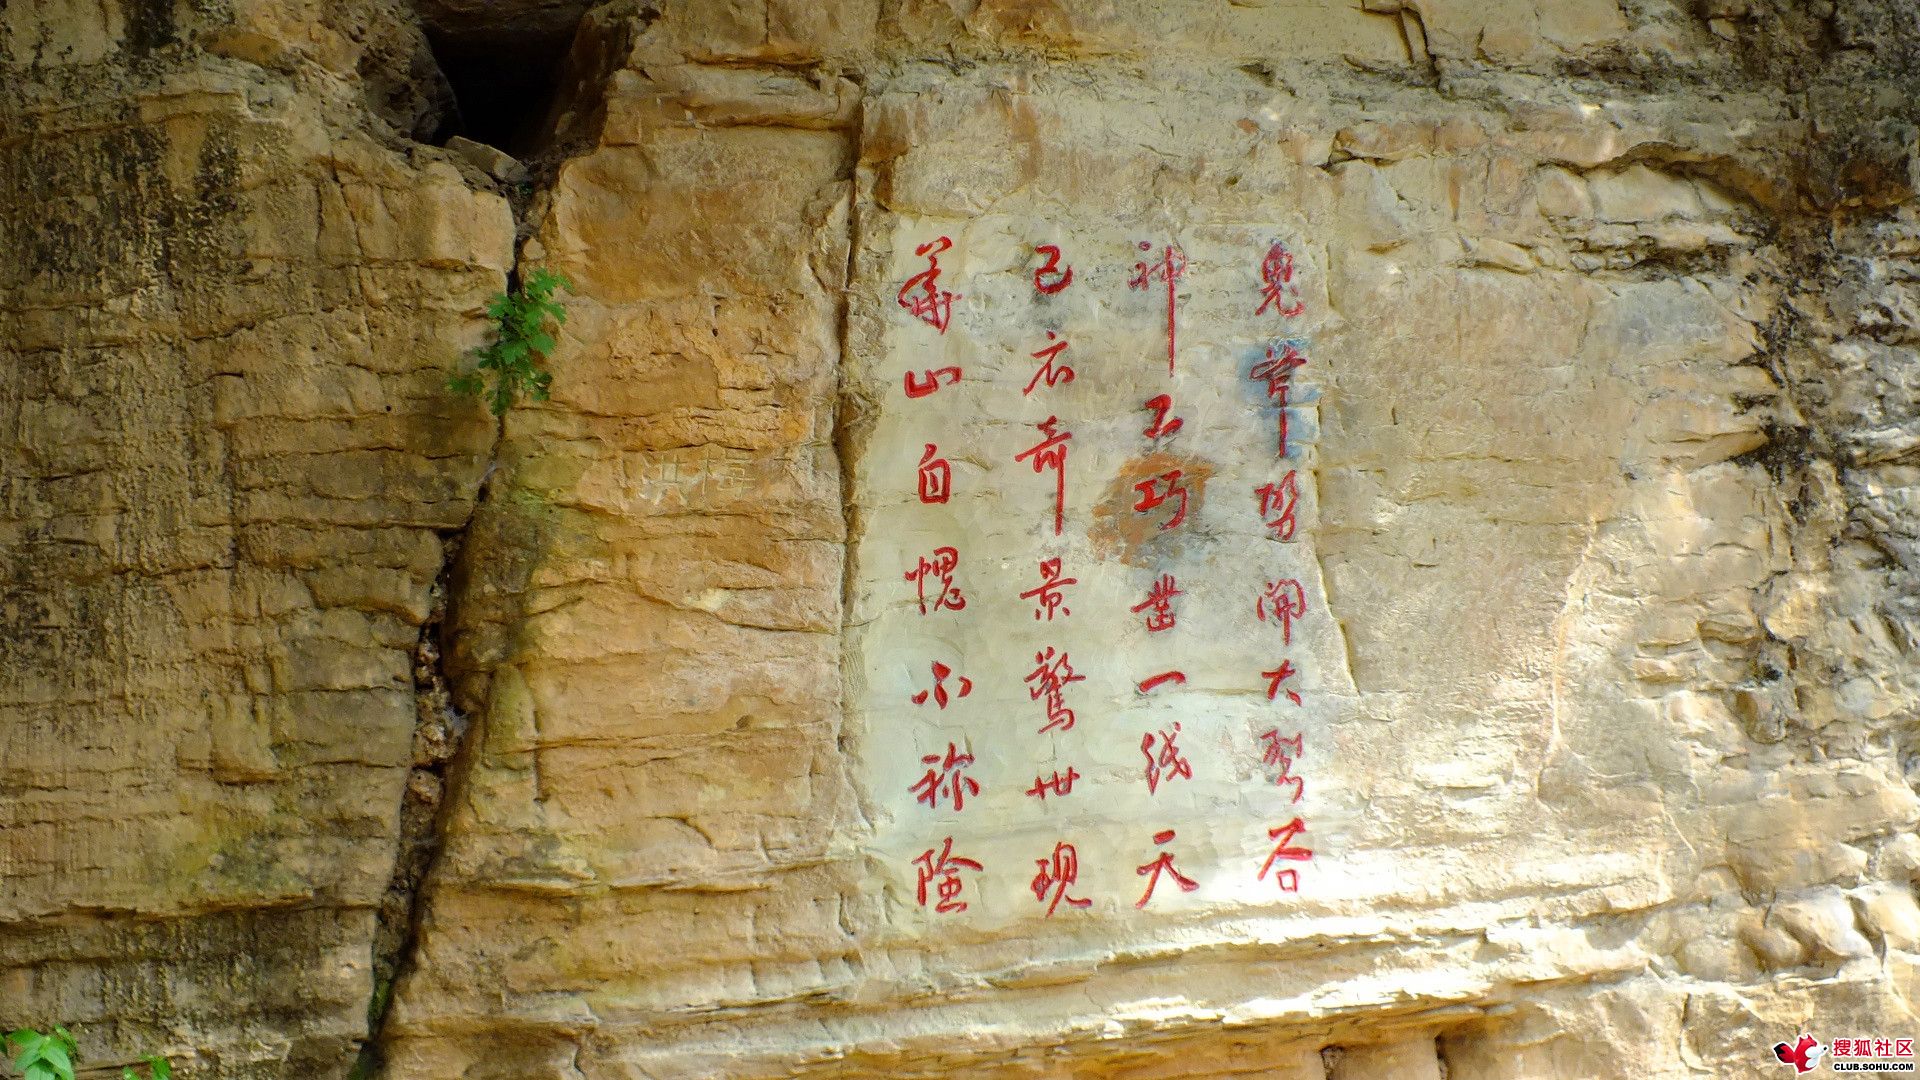 鬼斧劈開大裂谷
神工巧凿一线天
已有奇景驚世现
華山自愧不称险
洪梅
搜狐社区
CLUB.SOHU.COM